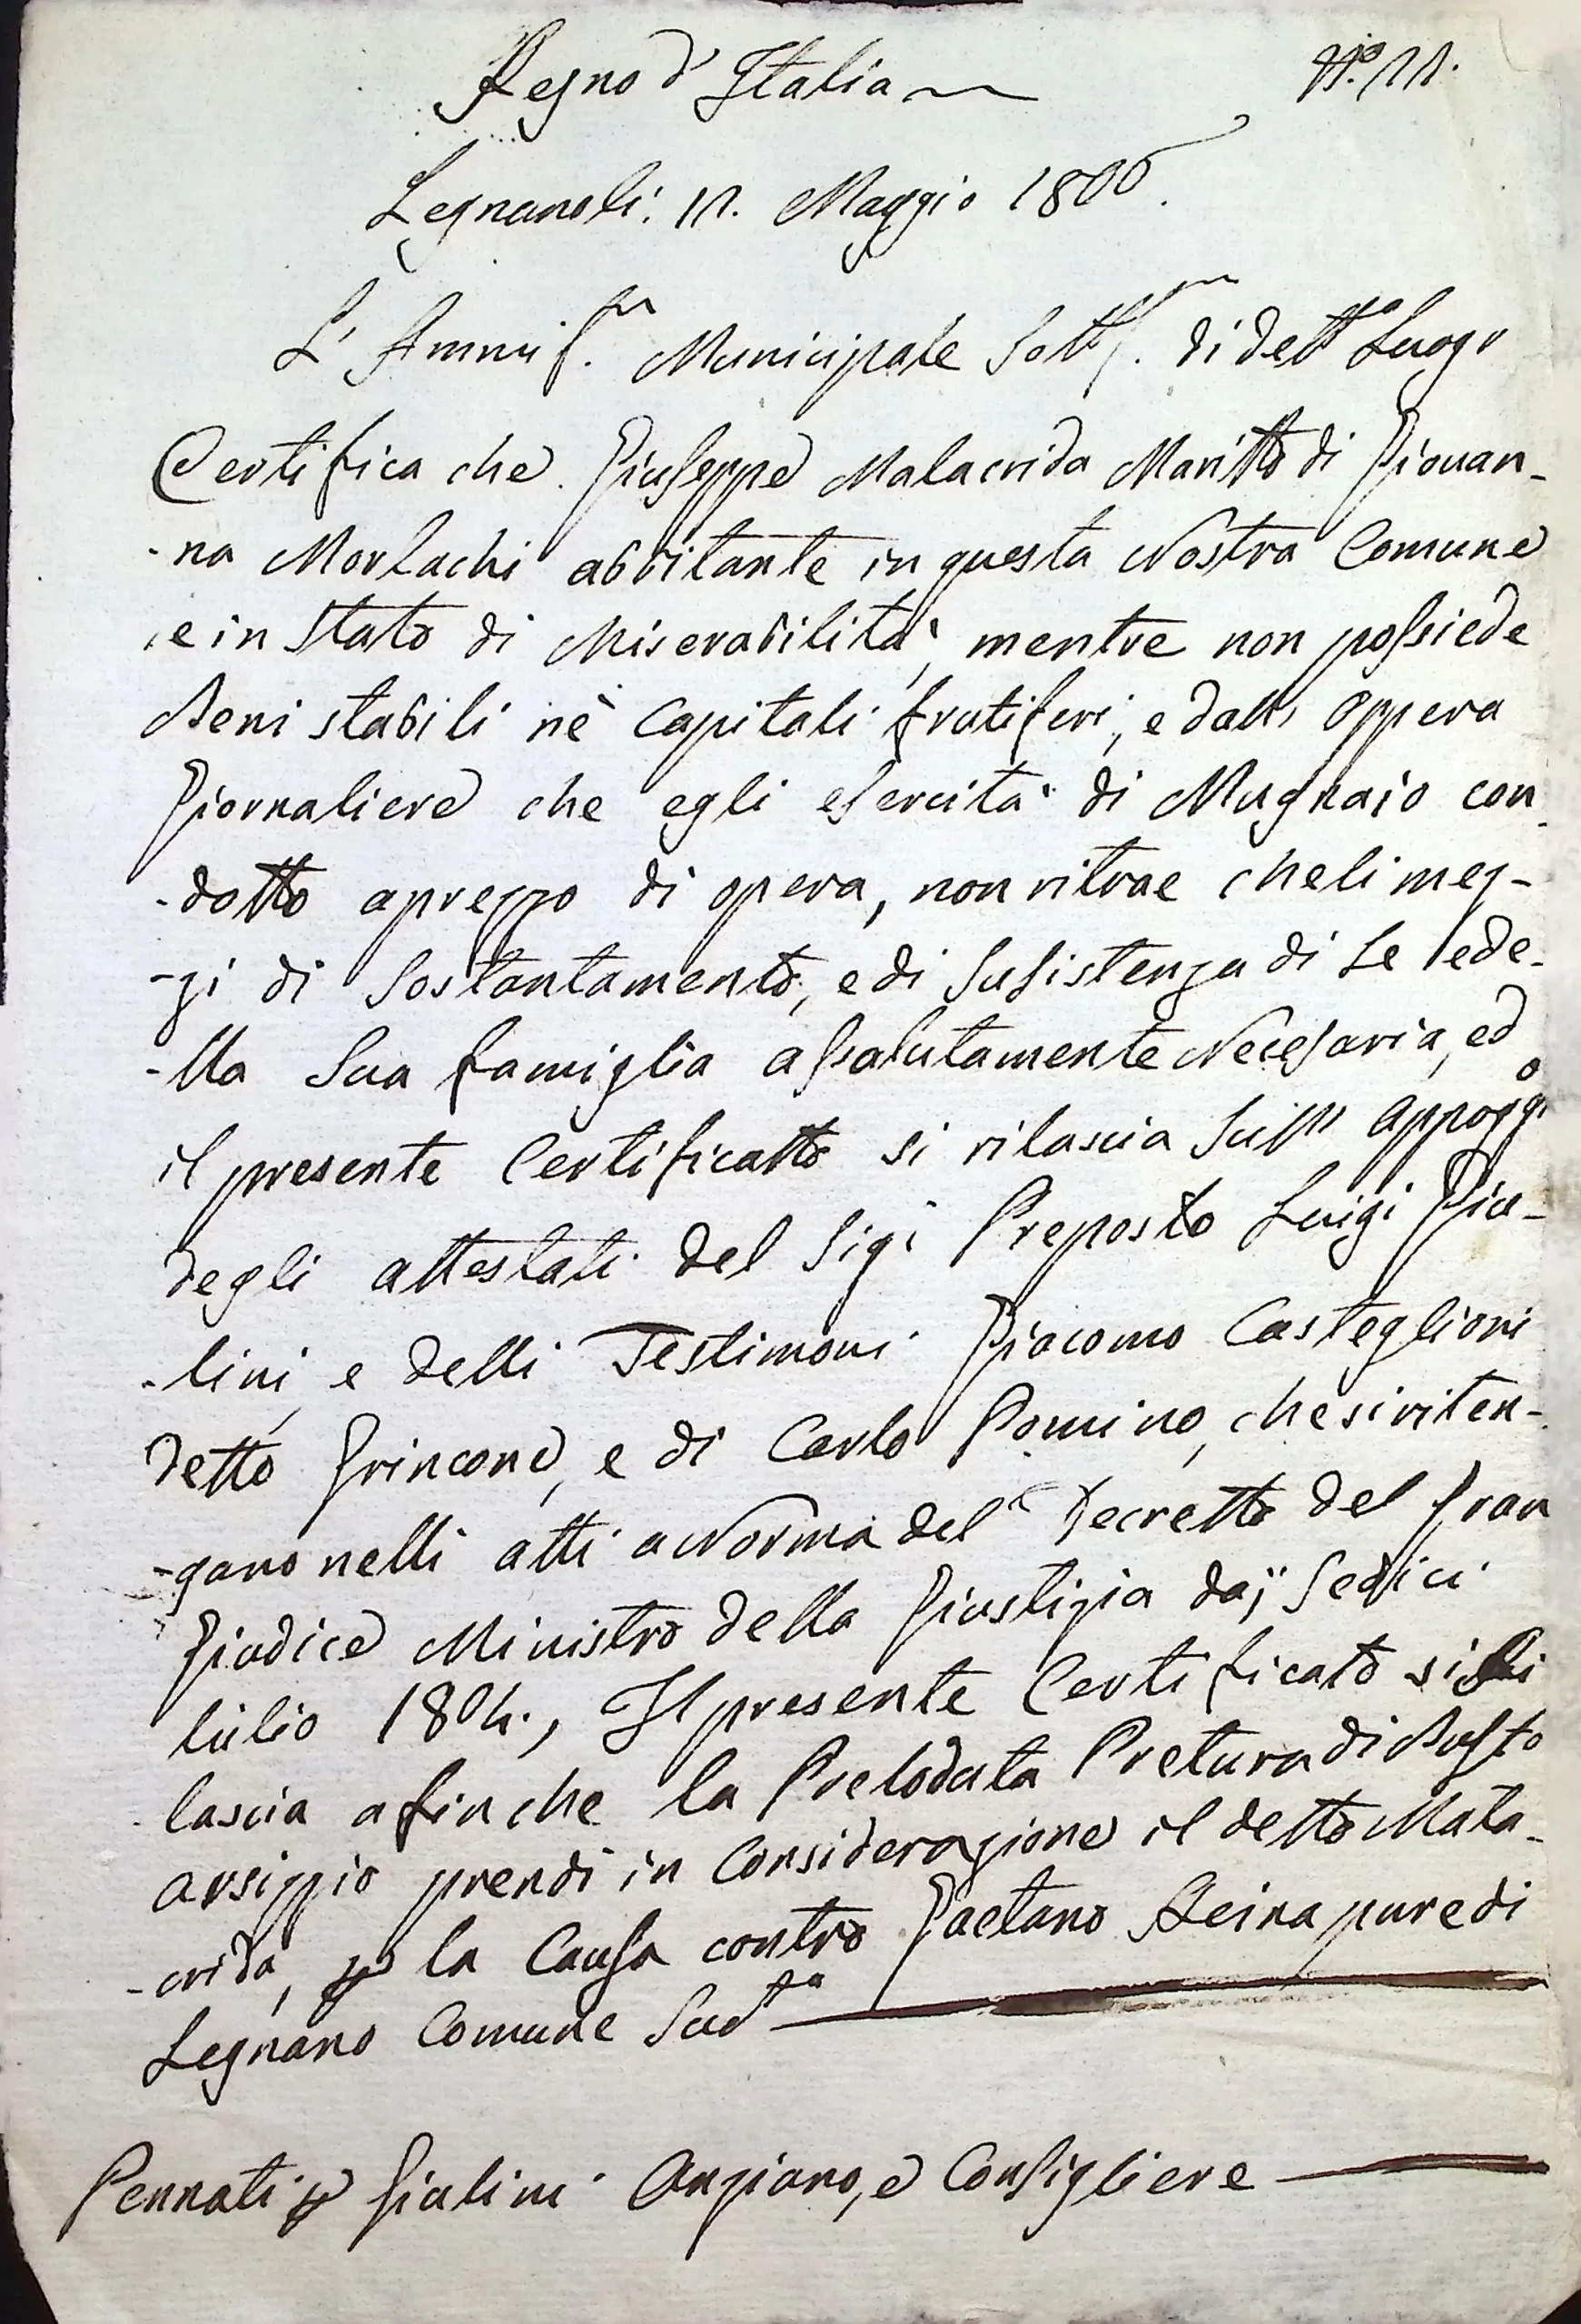 Regno d' Italia
N.º 11.
Legnano li: 11. Maggio 1806.
L' Ammis.ne Municipale Sott.ª di dettº Luogo
Certifica che Giuseppe Malacrida Maritto di Giouan-
-na Morlachi abbitante in questa Nostra Comune
e in Stato di Miserabilita', mentre non possiede
Beni stabili nè Capitali frutiferi, e dall' Oppera
Giornaliere che egli esercita di Mugnaio con-
-dotto a prezzo di opera, non ritrae che li mez-
-zi di Sostantamento, e di Susistenza di Se e de-
-lla Sua famiglia assalutamente Necesaria, ed
il presente Certificatto si rilascia Sull' appoggio
degli attestati del Sigi Preposto Luigi Giu-
-lini, e delli Testimoni Giacomo Casteglioni
detto Grincone, e di Carlo Pomino, che si riten-
-gano nelli atti a Norma del Decretto del Gran
Giudice Ministro della Giustizia daÿ Sedici
lulio 1804., Il presente Certificato si Ri
lascia afinche la Prelodata Pretura di Busto
arsizzio prendi in Considerazione il detto Mala-
-crida, p la Causa contro Gaetano Reina pure di
Legnano Comune Sudta
Pennati p Giulini Anziano, e Consigliere